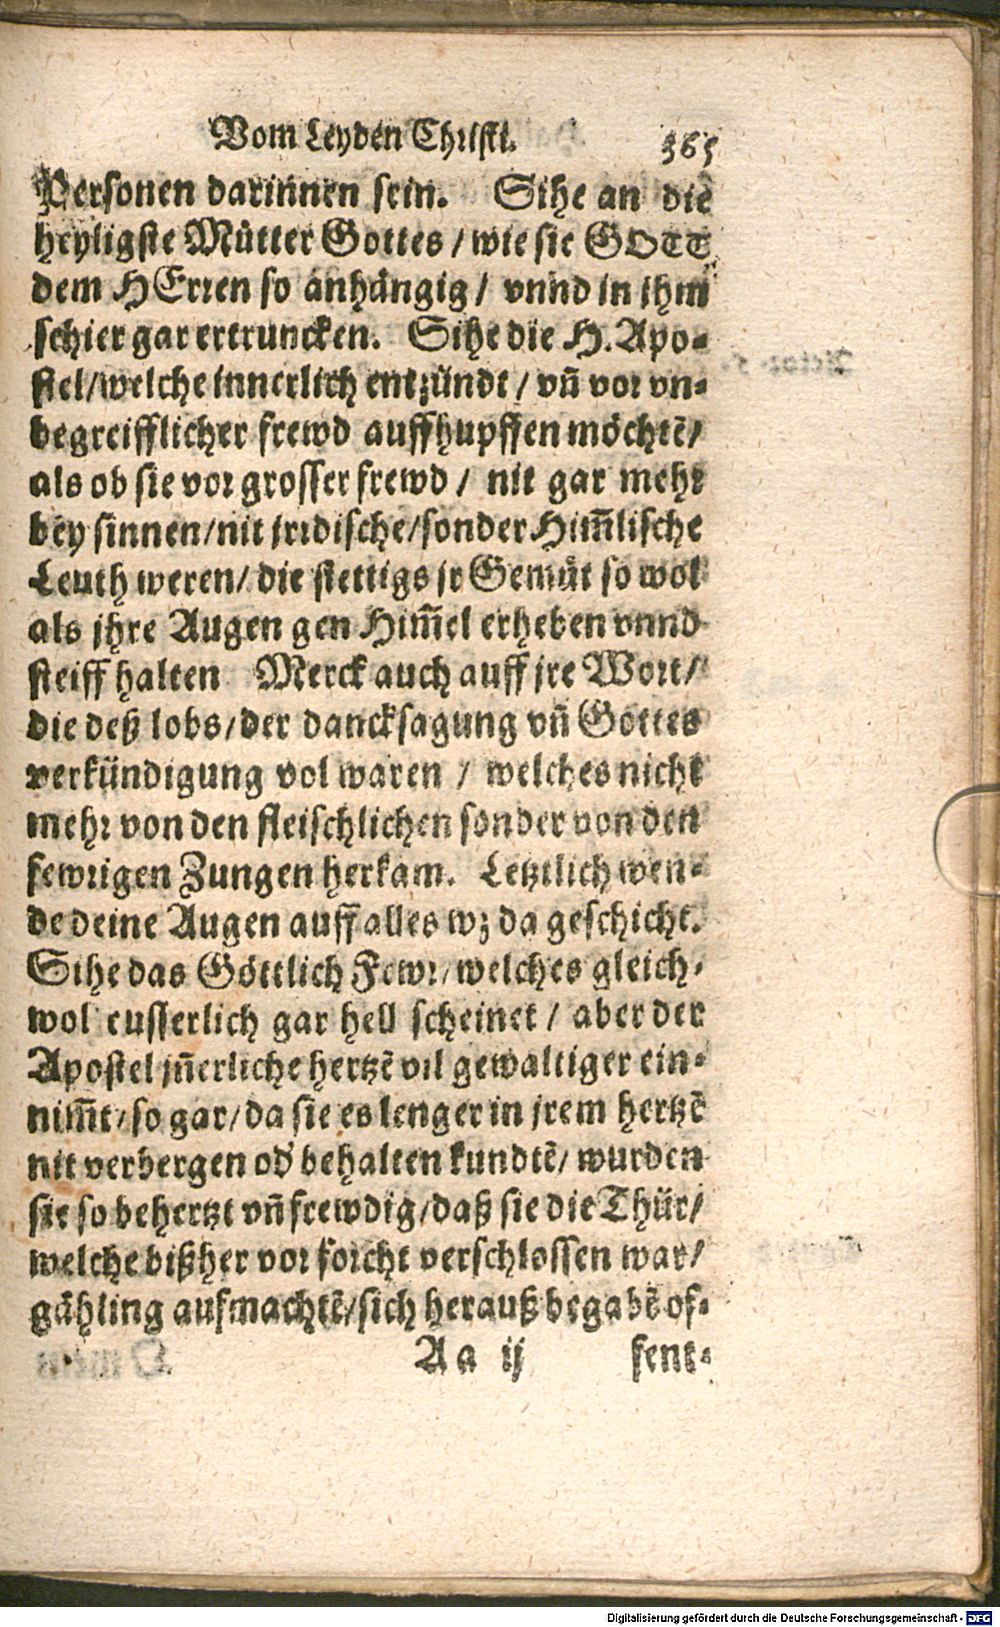 Vom Leyden Christi. 365
Personen darinnen sein. Sihe an die
heyligste Mütter Gottes / wie sie GOTT
dem HErren so anhängig / vnnd in ihm
schier gar ertruncken. Sihe die H. Apo-
stel/welche innerlich entzündt / vñ vor vn-
begreifflicher frewd auffhupffen möchtē/
als ob sie vor grosser frewd / nit gar mehr
bey sinnen/nit jrrdische/sonder Him̃lische
Leuth weren/ die stettigs jr Gemüt so wol
als jhre Augen gen Him̃el erheben vnnd
steiff halten Merck auch auff jre Wort/
die deß lobs/der dancksagung vñ Gottes
verkündigung vol waren / welches nicht
mehr von den fleischlichen sonder von den
fewrigen Zungen herkam. Letztlich wen-
de deine Augen auff alles wz da geschicht.
Sihe das Göttlich Fewr/welches gleich-
wol eusserlich gar hell scheinet / aber der
Apostel jñerliche hertzē vil gewaltiger ein-
nim̃t/so gar/da sie es lenger in jrem hertzē
nit verbergen od' behalten kundtē/ wurden
sie so behertzt vñ frewdig/daß sie die Thür/
welche bißher vor forcht verschlossen war/
gähling aufmachtē/sich herauß begabē of-
Aa ij fent-
Digitalisierung gefördert durch die Deutsche Forschungsgemeinschaft - DFG